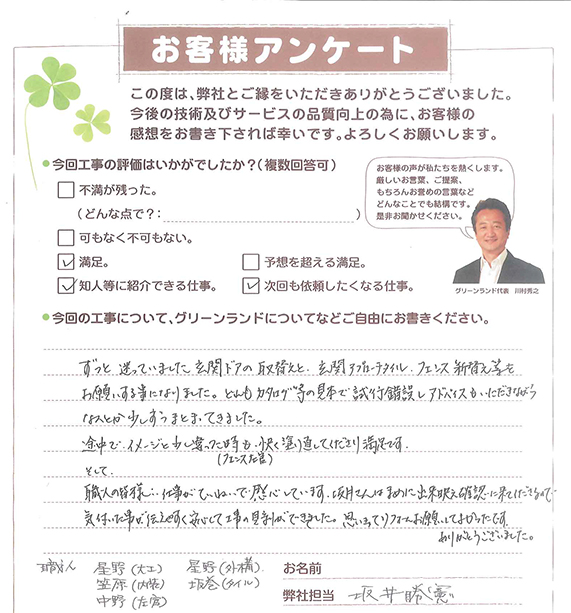 お客様アンケート
この度は、弊社とご縁をいただきありがとうございました。
今後の技術及びサービスの品質向上の為に、お客様の
感想をお書き下されば幸いです。よろしくお願いします。
今回工事の評価はいかがでしたか？（複数回答可）
不満が残った。
（どんな点で？：　）
可もなく不可もない。
満足。
予想を超える満足。
知人等に紹介できる仕事。
次回も依頼したくなる仕事。
お客様の声が私たちを熱くします。
厳しいお言葉、ご提案、
もちろんお誉めの言葉など
どんなことでも結構です。
是非お聞かせください。
グリーンランド代表　川村秀之
今回の工事について、グリーンランドについてなどご自由にお書きください。
ずっと迷っていました玄関ドアの取替えと、玄関アプローチタイル、フェンス新替え等を
お願いする事になりました。どれもカタログ等の見本で試行錯誤しアドバイスもいただきながら
なんとか少しずつまとまってきました。
途中で、イメージと少し違った時も、快く塗り直してくださり満足です。
（フェンス左官）
そして、
職人の皆様…仕事がていねいで感心しています。坂井さんはまめに出来映え確認に来てくださるので
気付いた事が伝えやすく安心して工事の見守りができました。思い切ってリフォームお願いしてよかったです。
ありがとうございました。
職人　星野（大工）　星野（外構）
笠原（内装）　坂巻（タイル）
中野（左官）
お名前
弊社担当　坂井勝憲